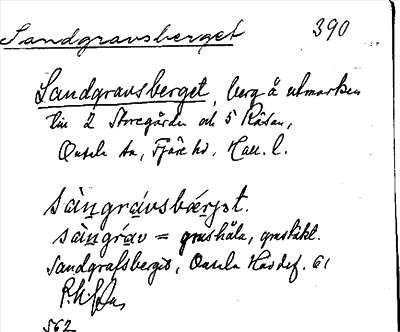 Sandgravsberget 390
Sandgravsberget, berg å utmarken
till 2 Storegården och 5 Råsan,
Onsala sn, Fjäre hd, Hall. l.
sàngrávsbærjet.
sàngráv = grushåla, grustäkt.
Sandgrafsberget, Onsala Häd def. 61
562